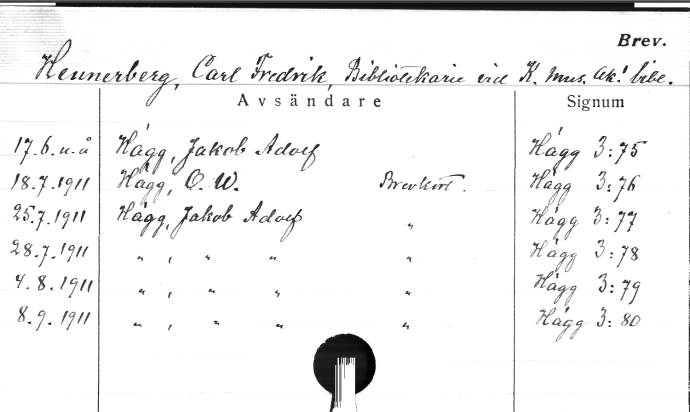 Brev.
Hennerberg, Carl Fredrik, Bibliotekarie vid K. Mus. Ak:s bibl.
Avsändare Signum
17.6. u.å Hägg, Jakob Adolf Hägg 3:75
18.7.1911 Hägg, O. W. Brevkort. Hägg 3:76
25.7.1911 Hägg, Jakob Adolf " Hägg 3:77
28.7.1911 " , " " " Hägg 3:78
4.8.1911 " , " " " Hägg 3:79
8.9.1911 " , " " " Hägg 3:80